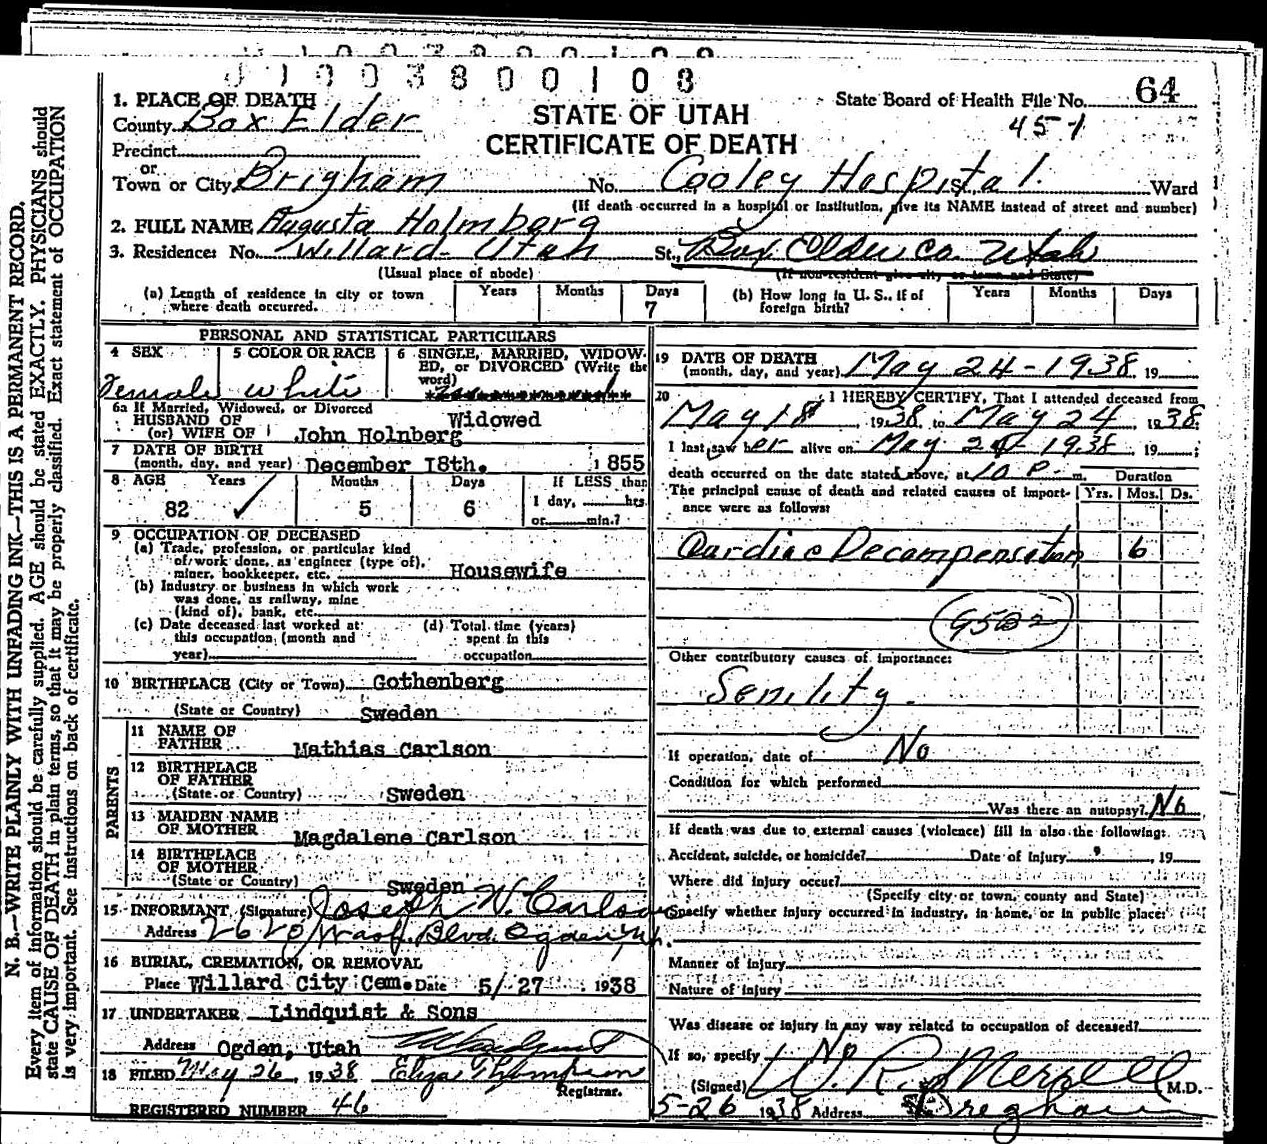 J 1 0 0 3 8 0 0 1 0 8
64
State Board of Health File No.
45-1
STATE OF UTAH
CERTIFICATE OF DEATH
1. PLACE OF DEATH
County Box Elder
Precinct
or
Town or City Brigham No. Cooley Hospital. Ward
(If death occurred in a hospital or institution, give its NAME instead of street and number)
2. FULL NAME Augusta Holmberg
3. Residence: No. Willard - Utah St., Box Elder Co. Utah
(Usual place of abode) (If non-resident give city or town and State)
(a) Length of residence in city or town where death occurred. Years Months Days 7
(b) How long in U. S., if of foreign birth? Years Months Days
PERSONAL AND STATISTICAL PARTICULARS
4 SEX Female
5 COLOR OR RACE white
6 SINGLE, MARRIED, WIDOWED, or DIVORCED (Write the word)
Widowed
6a If Married, Widowed, or Divorced
HUSBAND OF
(or) WIFE OF John Holnberg
7 DATE OF BIRTH
(month, day, and year) December 18th. 1855
8 AGE Years 82 Months 5 Days 6 If LESS than
1 day, hrs.
or min.?
9 OCCUPATION OF DECEASED
(a) Trade, profession, or particular kind
of work done, as engineer (type of),
miner, bookkeeper, etc. Housewife
(b) Industry or business in which work
was done, as railway, mine
(kind of), bank, etc.
(c) Date deceased last worked at
this occupation (month and
year)
(d) Total time (years)
spent in this
occupation
10 BIRTHPLACE (City or Town) Gothenberg
(State or Country) Sweden
PARENTS
11 NAME OF
FATHER Mathias Carlson
12 BIRTHPLACE
OF FATHER
(State or Country) Sweden
13 MAIDEN NAME
OF MOTHER Magdalene Carlson
14 BIRTHPLACE
OF MOTHER
(State or Country) Sweden
15 INFORMANT (Signature) Joseph W. Carlson
Address 2620 Wash. Blvd. Ogden, Ut.
16 BURIAL, CREMATION, OR REMOVAL
Place Willard City Cem. Date 5/-27 1938
17 UNDERTAKER Lindquist & Sons
Address Ogden, Utah
18 FILED May 26, 1938 Eliza Thompson
Registrar.
REGISTERED NUMBER 46
19 DATE OF DEATH
(month, day, and year) May 24 - 1938 19
20 I HEREBY CERTIFY, That I attended deceased from
May 18 1938, to May 24 1938.
I last saw her alive on May 24 1938 19 ;
death occurred on the date stated above, at 10 P. m.
Duration
The principal cause of death and related causes of importance were as follows: Yrs. Mos. Ds.
Cardiac Decompensation 6
Other contributory causes of importance:
Senility.
If operation, date of No
Condition for which performed
Was there an autopsy? No
If death was due to external causes (violence) fill in also the following:
Accident, suicide, or homicide? Date of Injury , 19
Where did injury occur?
(Specify city or town, county and State)
Specify whether injury occurred in industry, in home, or in public place:
Manner of injury
Nature of injury
Was disease or injury in any way related to occupation of deceased?
If so, specify No
(Signed) W. R. Merrell M.D.
5-26 1938 Address Brigham
N. B.—WRITE PLAINLY WITH UNFADING INK—THIS IS A PERMANENT RECORD.
Every item of information should be carefully supplied. AGE should be stated EXACTLY. PHYSICIANS should
state CAUSE OF DEATH in plain terms, so that it may be properly classified. Exact statement of OCCUPATION
is very important. See instructions on back of certificate.